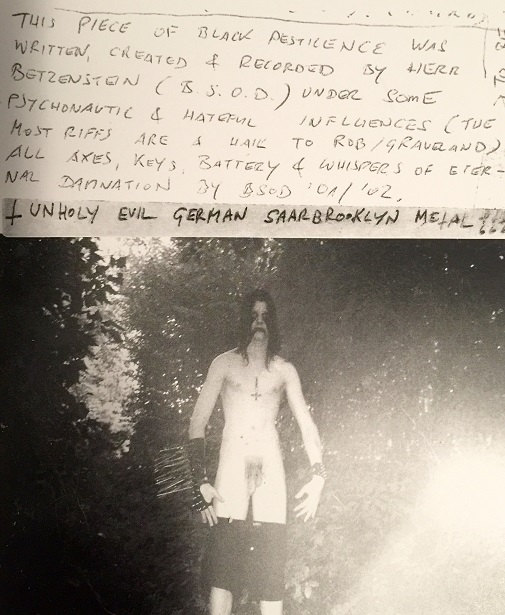 THIS PIECE OF BLACK PESTILENCE WAS
WRITTEN, CREATED & RECORDED BY HERR
BETZENSTEIN (B.S.O.D.) UNDER SOME
PSYCHONAUTIC & HATEFUL INFLUENCES (THE
MOST RIFFS ARE A HAIL TO ROB/GRAVELAND)
ALL AXES, KEYS, BATTERY & WHISPERS OF ETER-
NAL DAMNATION BY BSOD '01/'02.
† UNHOLY EVIL GERMAN SAARBROOKLYN METAL !!!